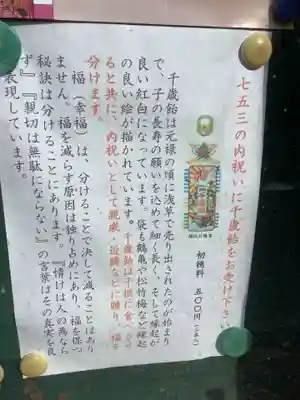 七五三の内祝いに千歳飴をお分け下さい
初穂料
五〇〇円
千歳飴は元禄の頃に浅草で売り出されたのが始まり
で、子の長寿の願いを込めて細く長く、そして縁起が
良い紅白になっています。袋も鶴亀や松竹梅など縁起
の良い絵が描かれています。千歳飴は子供に食べ
ると共に、内祝いとして親戚・近隣などに贈り、福を
分けます。
福(幸福)は、分けることで決して減ることはあり
ません。福を減らす原因は独り占めにあり、福を保つ
秘訣は分けることにあります。『情けは人の為なら
ず』『親切は無駄にならない』の言葉はその真実を良
く表現しています。